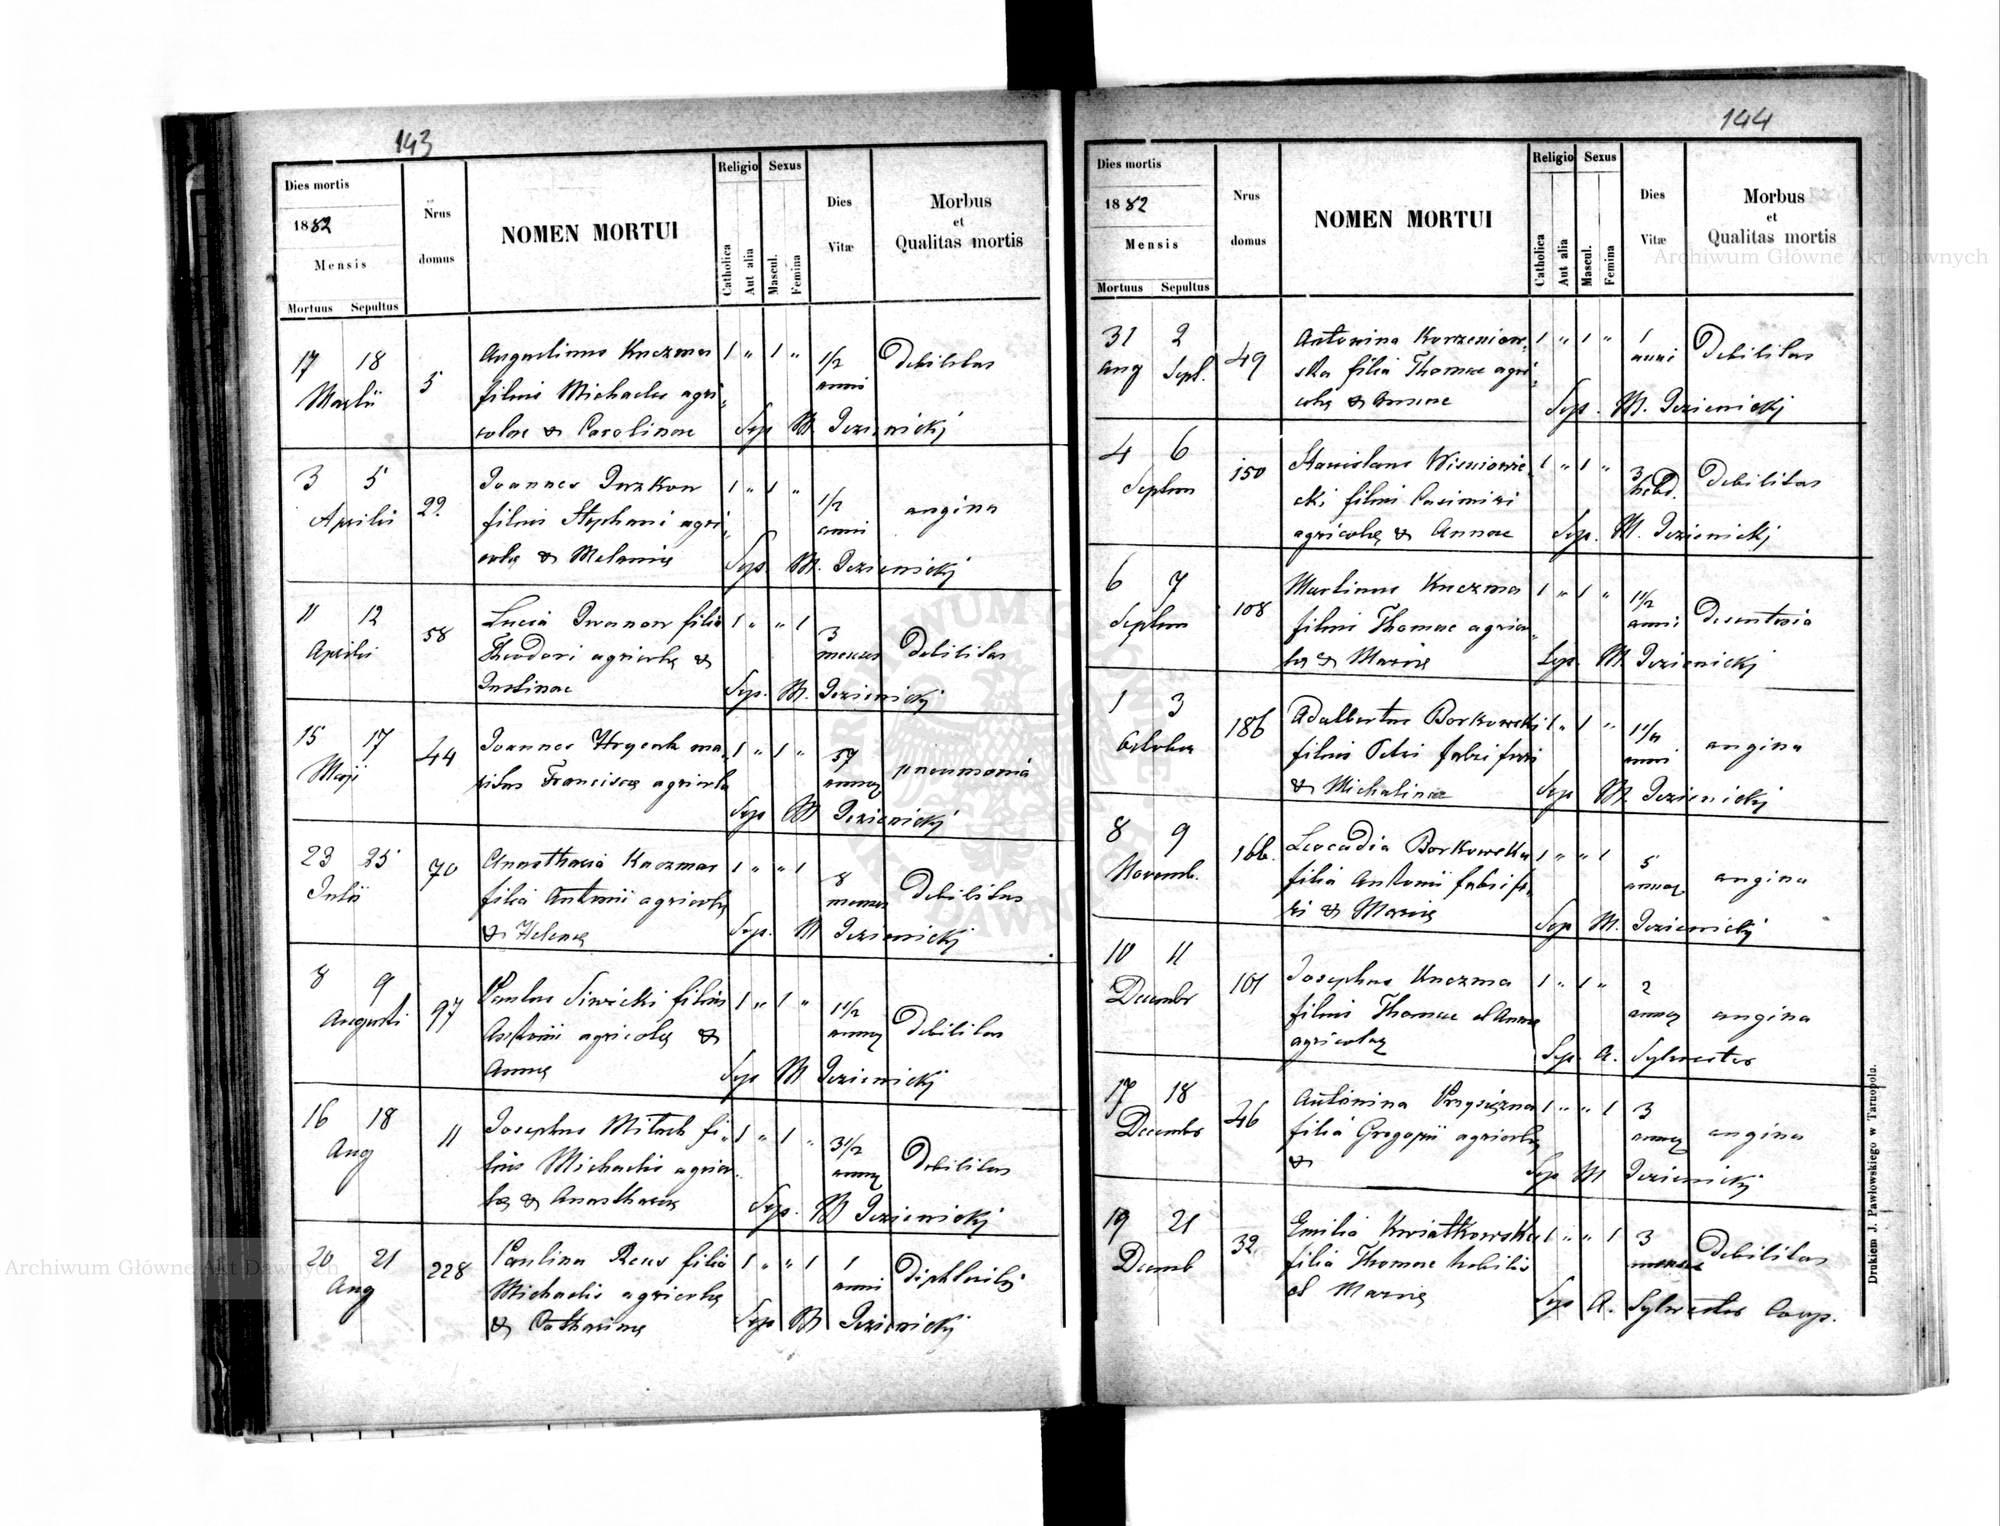 143
Dies mortis
1882
Mensis
Mortuus Sepultus
Nrus
domus
NOMEN MORTUI
Religio
Catholica
Aut alia
Sexus
Mascul.
Femina
Dies
Vitæ
Morbus
et
Qualitas mortis
17 18
Martii
5
Augustinus Kuczma
filius Michaelis agri
colae & Carolinae
1 " 1 "
1/2
anni
Debilitas
Sep M. Jezienickj
3 5
Aprilis
22
Joannes
filius Stephani agri
colę & Melanię
1 " 1 "
1/2
anni
angina
Sep M. Jezienickj
11 12
Aprilis
58
Lucia Iwanow filia
Theodori agricolę &
Justinae
1 " " 1
3
menses
Debilitas
Sep. M. Jezienickj
15 17
Maji
44
Joannes ma
ritus Franciscę agricola
1 " 1 "
57
annor
pneumonia
Sep M Jezienickj
23 25
Julii
70
Anasthasia Kaczmar
filia Antonii agricolę
& Helenę
1 " " 1
8
menses
Debilitas
Sep. M Jezienickj
8 9
Augusti
97
Paulus Siwicki filius
Antonii agricolę &
Annę
1 " 1 "
1 1/2
annor
Debilitas
Sep M Jezienickj
16 18
Aug
11
Josephus fi
lius Michaelis agrico
lę & Anasthasię
1 " 1 "
3 1/2
annor
Debilitas
Sep. M Jezienickj
20 21
Aug
228
Paulina filia
Michaelis agricolę
& Catharinę
1 " " 1
1
anni
Sep M Jezienickj
144
Dies mortis
1882
Mensis
Mortuus Sepultus
Nrus
domus
NOMEN MORTUI
Religio
Catholica
Aut alia
Sexus
Mascul.
Femina
Dies
Vitæ
Morbus
et
Qualitas mortis
31 2
Aug Sept.
49
Antonina Korzeniow
ska filia Thomae agri
colę & Annae
1 " 1 "
1
anni
Debilitas
Sep. M. Jezienickj
4 6
Septem
150
Stanislaus Wisniowie
cki filius Casimiri
agricolę & Annae
1 " 1 "
3
hebd.
Debilitas
Sep. M. Jezienickj
6 7
Septem
108
Martinus Kuczma
filius Thomae agrico
lę & Marię
1 " 1 "
1 1/2
anni
Sep M. Jezienickj
1 3
Octobr
186
Adalbertus Borkowski
filius Petri fabri ferri
& Michalinae
1 " 1 "
anni
angina
Sep M. Jezienickj
8 9
Novemb.
166.
Leocadia Borkowska
filia Antonii fabri fe
ri & Marię
1 " " 1
5
annor
angina
Sep M. Jezienickj
10 11
Decembr
101
Josephus Kuczma
filius Thomae et Annae
agricolar
1 " 1 "
2
annor
angina
Sep A. Sylwester
17 18
Decembr
46
Antonina
filia Gregorii agricolę
&
1 " " 1
3
annor
angina
Sep M Jezienickj
19 21
Decemb
32
Emilia Kwiatkowska
filia Thomae Nobilis
et Marię
1 " " 1
3
menses
Debilitas
Sep A. Sylwester Coop.
Drukiem J. Pawłowskiego w Tarnopolu.
Archiwum Główne Akt Dawnych
Archiwum Główne Akt Dawnych